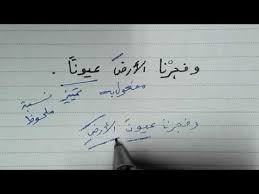 وَفَجَّرْنَا الأَرْضَ عيونًا.
مفعول به تمييز نسبة
ملحوظ
وفجرنا عيونَ الأرضِ